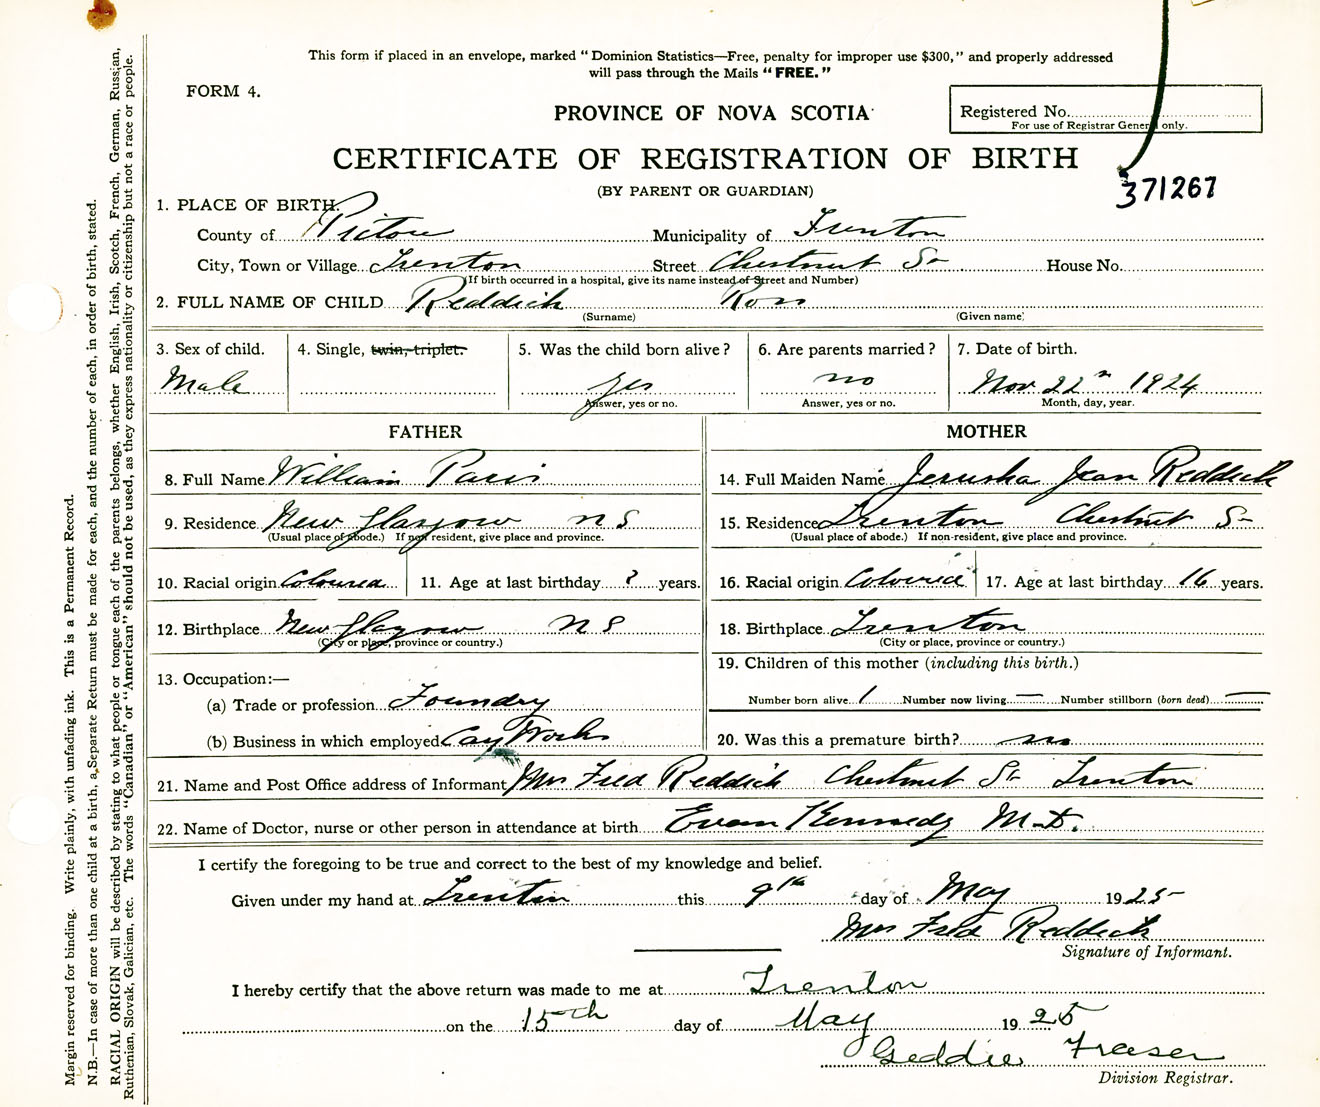 This form if placed in an envelope, marked "Dominion Statistics—Free, penalty for improper use $300," and properly addressed
will pass through the Mails "FREE."
FORM 4.
PROVINCE OF NOVA SCOTIA
Registered No.
For use of Registrar General only.
CERTIFICATE OF REGISTRATION OF BIRTH
(BY PARENT OR GUARDIAN)
371267
1. PLACE OF BIRTH.
County of Pictou Municipality of Trenton
City, Town or Village Trenton Street Chestnut St House No.
(If birth occurred in a hospital, give its name instead of Street and Number)
2. FULL NAME OF CHILD Reddick Ross
(Surname) (Given name)
3. Sex of child. 4. Single, twin, triplet. 5. Was the child born alive? 6. Are parents married? 7. Date of birth.
Male yes no Nov 22nd 1924
Answer, yes or no. Answer, yes or no. Month, day, year.
FATHER MOTHER
8. Full Name William Paris 14. Full Maiden Name Jerusha Jean Reddick
9. Residence New Glasgow N S 15. Residence Trenton Chestnut St
(Usual place of abode.) If non resident, give place and province. (Usual place of abode.) If non-resident, give place and province.
10. Racial origin Coloured 11. Age at last birthday ? years. 16. Racial origin Coloured 17. Age at last birthday 16 years.
12. Birthplace New Glasgow N S 18. Birthplace Trenton
(City or place, province or country.) (City or place, province or country.)
19. Children of this mother (including this birth.)
13. Occupation:—
(a) Trade or profession Foundry Number born alive 1 Number now living — Number stillborn (born dead) —
(b) Business in which employed Car Works 20. Was this a premature birth? no
21. Name and Post Office address of Informant Mrs Fred Reddick Chestnut St Trenton
22. Name of Doctor, nurse or other person in attendance at birth Evan Kennedy M.D.
I certify the foregoing to be true and correct to the best of my knowledge and belief.
Given under my hand at Trenton this 9th day of May 1925
Mrs Fred Reddick
Signature of Informant.
I hereby certify that the above return was made to me at Trenton
on the 15th day of May 1925
Geddie Fraser
Division Registrar.
Margin reserved for binding. Write plainly, with unfading ink. This is a Permanent Record.
N.B.—In case of more than one child at a birth, a Separate Return must be made for each, and the number of each, in order of birth, stated.
RACIAL ORIGIN will be described by stating to what people or tongue each of the parents belongs, whether English, Irish, Scotch, French, German, Russian,
Ruthenian, Slovak, Galician, etc. The words "Canadian" or "American" should not be used, as they express nationality or citizenship but not a race or people.